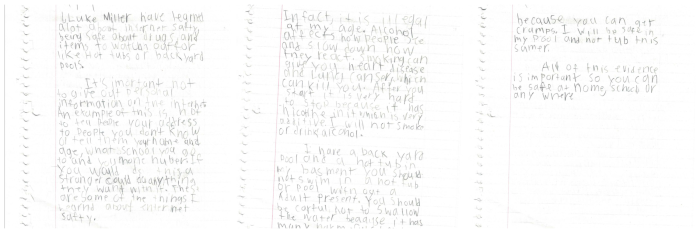 I, Luke Miller have learned
alot about internet safty
being safe about drugs, and
items to watch out for
like hot tubs or back yard
pools.
It's important not
to give out personal
information on the
An example of this is not
to tell people your address
to people you don't know
or tell them your name and
age, what school you go
to and phone number. If
you would do this a
stranger could do anything
they want with it. These
are some of the things I
learned about internet
safty.
In fact, it is illegal
at my age. Alcohol
affects how people see
and slow down how
they react. Smoking can
give you heart disease
and lung cancer which
can kill you. After you
start it is very hard
to stop because it has
nicotine in it which is very
addictive. I will not smoke
or drink alcohol.
I have a back yard
pool and a hot tub in
my basment. You should
not swim in a hot tub
or pool with out a
adult present. You should
be carful not to swallow
the water because it has
many
because you can get
cramps. I will be safe in
my pool and hot tub this
summer.
All of this evidence
is important so you can
be safe at home, school or
any where